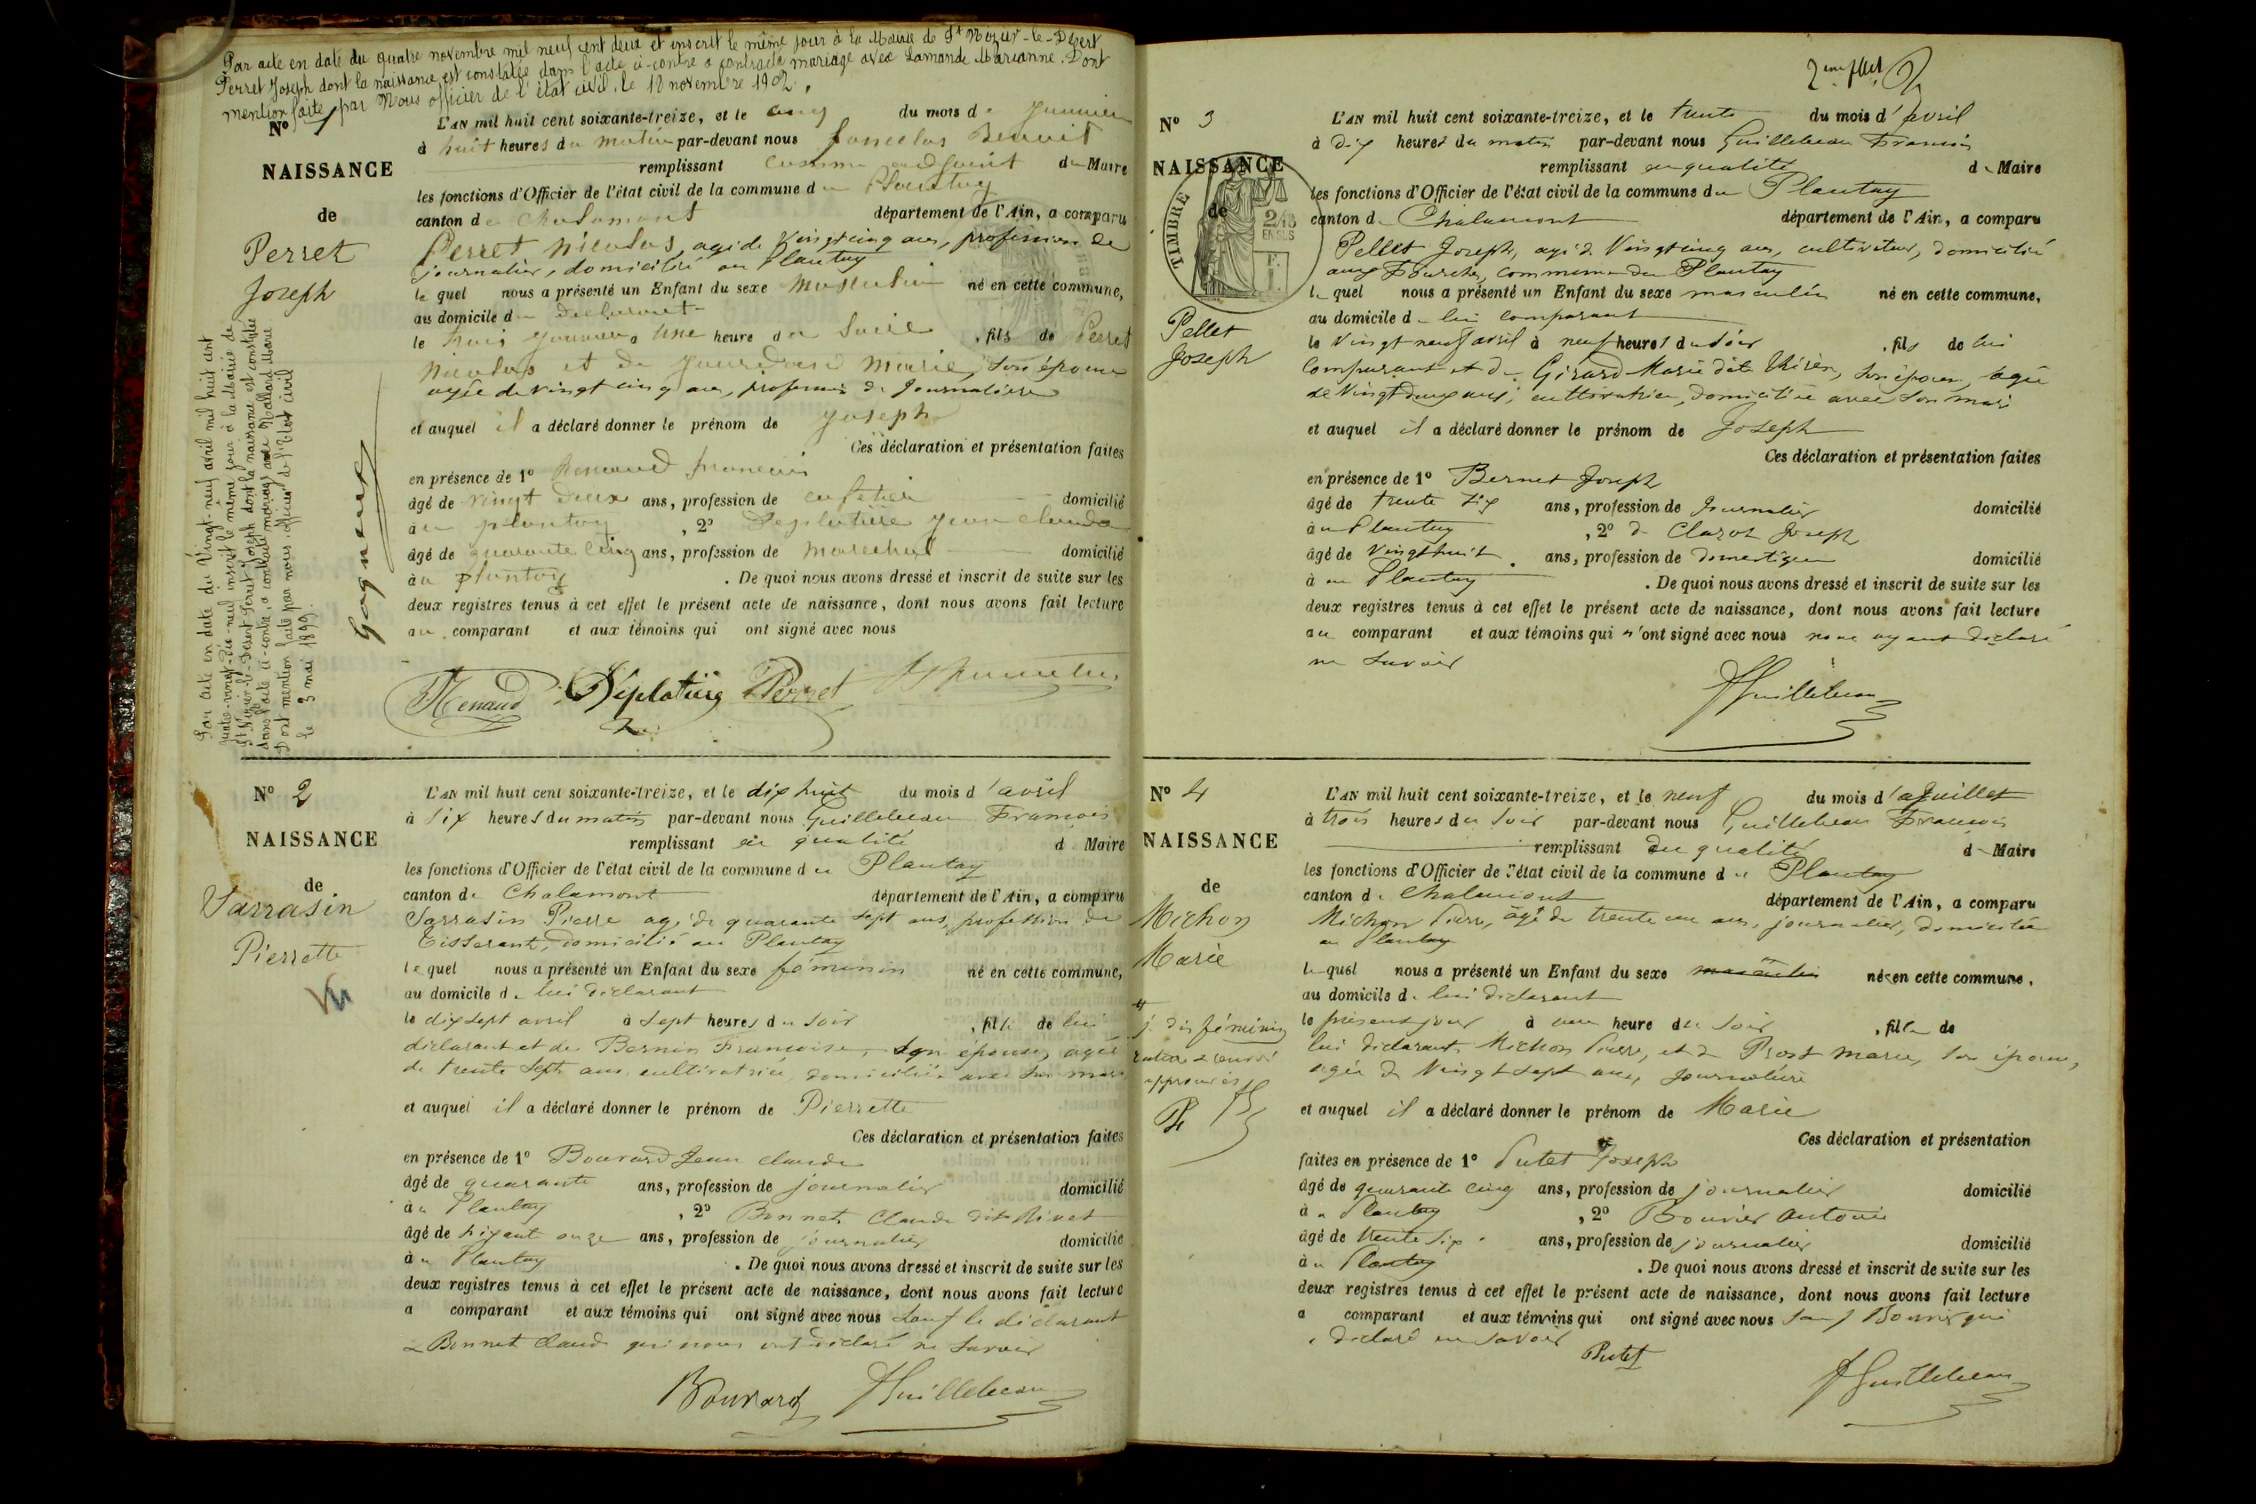 Par acte en date du quatre novembre mil neuf cent deux et inscrit le même jour à la Mairie de St Nizier-le-Désert
Perret Joseph dont la naissance est constatée dans l'acte ci-contre a contracté mariage avec Lamande Marianne. Dont
mention faite par Nous officier de l'état civil, le 12 novembre 1902.
No 1
NAISSANCE
de
Perret
Joseph
Par acte en date du vingt-neuf avril mil huit cent
quatre-vingt-dix-neuf inscrit le même jour à la Mairie de
St Nizier-le-Désert Perret Joseph dont la naissance est constatée
dans l'acte ci-contre, a contracté mariage avec Mallard Marie
Dont mention faite par nous, officier de l'état civil
le 3 mai 1899.
Gagneux
L'AN mil huit cent soixante-treize, et le cinq du mois de Janvier
à huit heures du matin par-devant nous Benoit
remplissant comme adjoint du Maire
les fonctions d'Officier de l'état civil de la commune du Plantay
canton de Chalamont département de l'Ain, a comparu
Perret Nicolas, agé de vingt cinq ans, profession de
journalier, domicilié au Plantay
le quel nous a présenté un Enfant du sexe Masculin né en cette commune,
au domicile du declarant
le trois janvier, à une heure du Soir, fils de Perret
Nicolas et de Marie, son épouse
agée de vingt cinq ans, profession de Journalière
et auquel il a déclaré donner le prénom de Joseph
Ces déclaration et présentation faites
en présence de 1o Renaud francois
âgé de vingt deux ans, profession de cafetier domicilié
à au plantay, 2o Deplatière Jean claude
âgé de quarante cinq ans, profession de marechal domicilié
à au plantay. De quoi nous avons dressé et inscrit de suite sur les
deux registres tenus à cet effet le présent acte de naissance, dont nous avons fait lecture
au comparant et aux témoins qui ont signé avec nous
Renaud Déplatière Perret
No 2
NAISSANCE
de
Sarrasin
Pierrette
L'AN mil huit cent soixante-treize, et le dix huit du mois d'avril
à six heures du matin par-devant nous Guillebeau Francois
remplissant en qualité d Maire
les fonctions d'Officier de l'état civil de la commune du Plantay
canton de Chalamont département de l'Ain, a comparu
Sarrasin Pierre agé de quarante sept ans, profession de
Tisserant, domicilié au Plantay
le quel nous a présenté un Enfant du sexe féminin né en cette commune,
au domicile de lui déclarant
le dix sept avril à sept heures du soir, fille de lui
déclarant et de Bernin Francoise, son épouse, agée
de trente sept ans, cultivatrice, domiciliée avec son mari
et auquel il a déclaré donner le prénom de Pierrette
Ces déclaration et présentation faites
en présence de 1o Bouvard Jean claude
âgé de quarante ans, profession de journalier domicilié
à au Plantay, 2o Bonnet Claude dit
âgé de soixante onze ans, profession de journalier domicilié
à au Plantay. De quoi nous avons dressé et inscrit de suite sur les
deux registres tenus à cet effet le présent acte de naissance, dont nous avons fait lecture
a comparant et aux témoins qui ont signé avec nous sauf le déclarant
& Bonnet Claude qui nous ont déclaré ne savoir
Bouvard FGuillebeau
No 3
NAISSANCE
de
TIMBRE
Pellet
Joseph
L'AN mil huit cent soixante-treize, et le trente du mois d'avril
à dix heures du matin par-devant nous Guillebeau Francois
remplissant en qualité de Maire
les fonctions d'Officier de l'état civil de la commune du Plantay
canton de Chalamont département de l'Ain, a comparu
Pellet Joseph, agé de Vingt cinq ans, cultivateur, domicilié
aux Fourches, commune du Plantay
le quel nous a présenté un Enfant du sexe masculin né en cette commune,
au domicile de lui comparant
le vingt neuf avril à neuf heures du soir, fils de lui
comparant et de Girard Marie dite Thérèse, son épouse, agée
de vingt deux ans, cultivatrice, domiciliée avec son mari
et auquel il a déclaré donner le prénom de Joseph
Ces déclaration et présentation faites
en présence de 1o Bernet Joseph
âgé de trente six ans, profession de Journalier domicilié
à au Plantay, 2o de Joseph
âgé de vingt huit ans, profession de domestique domicilié
à au Plantay. De quoi nous avons dressé et inscrit de suite sur les
deux registres tenus à cet effet le présent acte de naissance, dont nous avons fait lecture
au comparant et aux témoins qui n'ont signé avec nous nous ayant déclaré
ne savoir
FGuillebeau
No 4
NAISSANCE
de
Michon
Marie
féminin
approuvés
L'AN mil huit cent soixante-treize, et le neuf du mois d Juillet
à trois heures du soir par-devant nous Guillebeau Francois
remplissant en qualité de Maire
les fonctions d'Officier de l'état civil de la commune du Plantay
canton de Chalamont département de l'Ain, a comparu
Michon Pierre, âgé de trente un ans, journalier, domicilié
au Plantay
le quel nous a présenté un Enfant du sexe masculin né en cette commune,
au domicile de lui déclarant
le présent jour à une heure du soir, fille de
lui déclarant Michon Pierre, et de Prost Marie, son épouse,
agée de vingt sept ans, Journalière
et auquel il a déclaré donner le prénom de Marie
Ces déclaration et présentation
faites en présence de 1o Putet Joseph
âgé de quarante cinq ans, profession de journalier domicilié
à au Plantay, 2o Bouvier Antoine
âgé de trente six ans, profession de journalier domicilié
à au Plantay. De quoi nous avons dressé et inscrit de suite sur les
deux registres tenus à cet effet le présent acte de naissance, dont nous avons fait lecture
a comparant et aux témoins qui ont signé avec nous sauf Bouvier qui
a déclaré ne savoir
Putet FGuillebeau